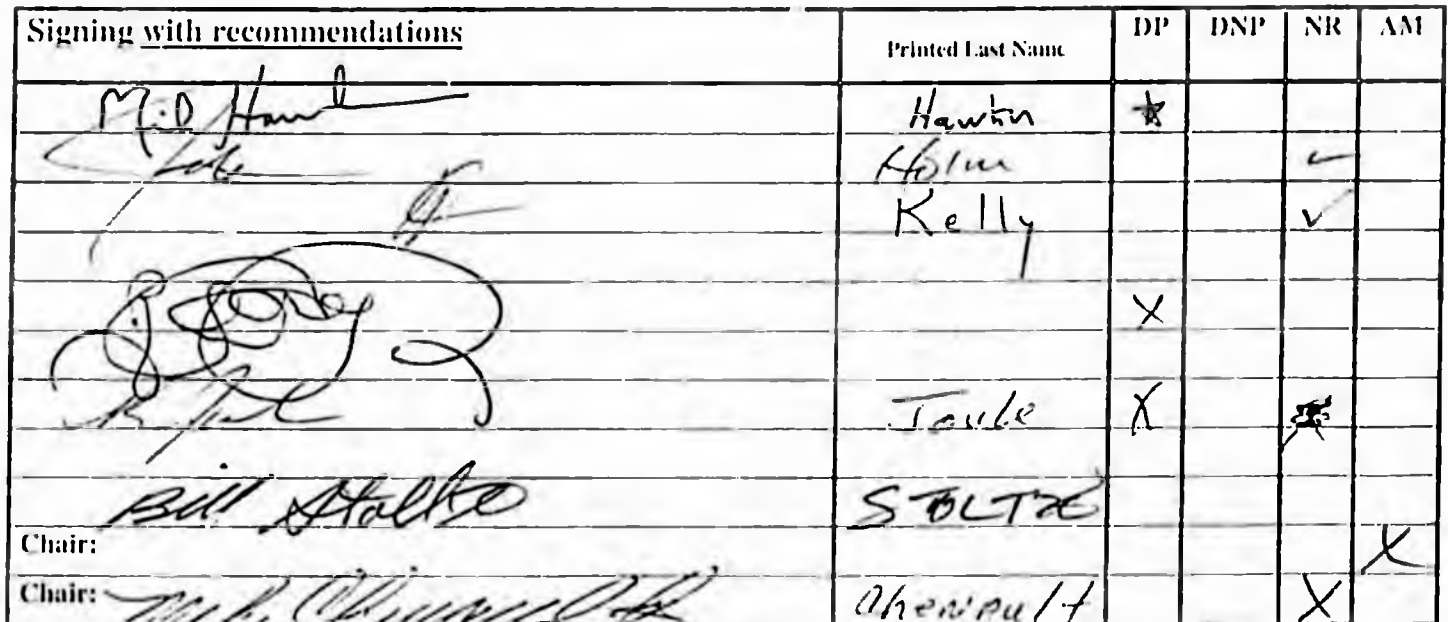 Signing with recommendations Printed Last Name DP DNP NR AM
M.D Haw Hawkr
Holm ✓
Kelly ✓
X
Joule X
Bill Stoltze STOLTZE
Chair: X
Chair: Chenault X